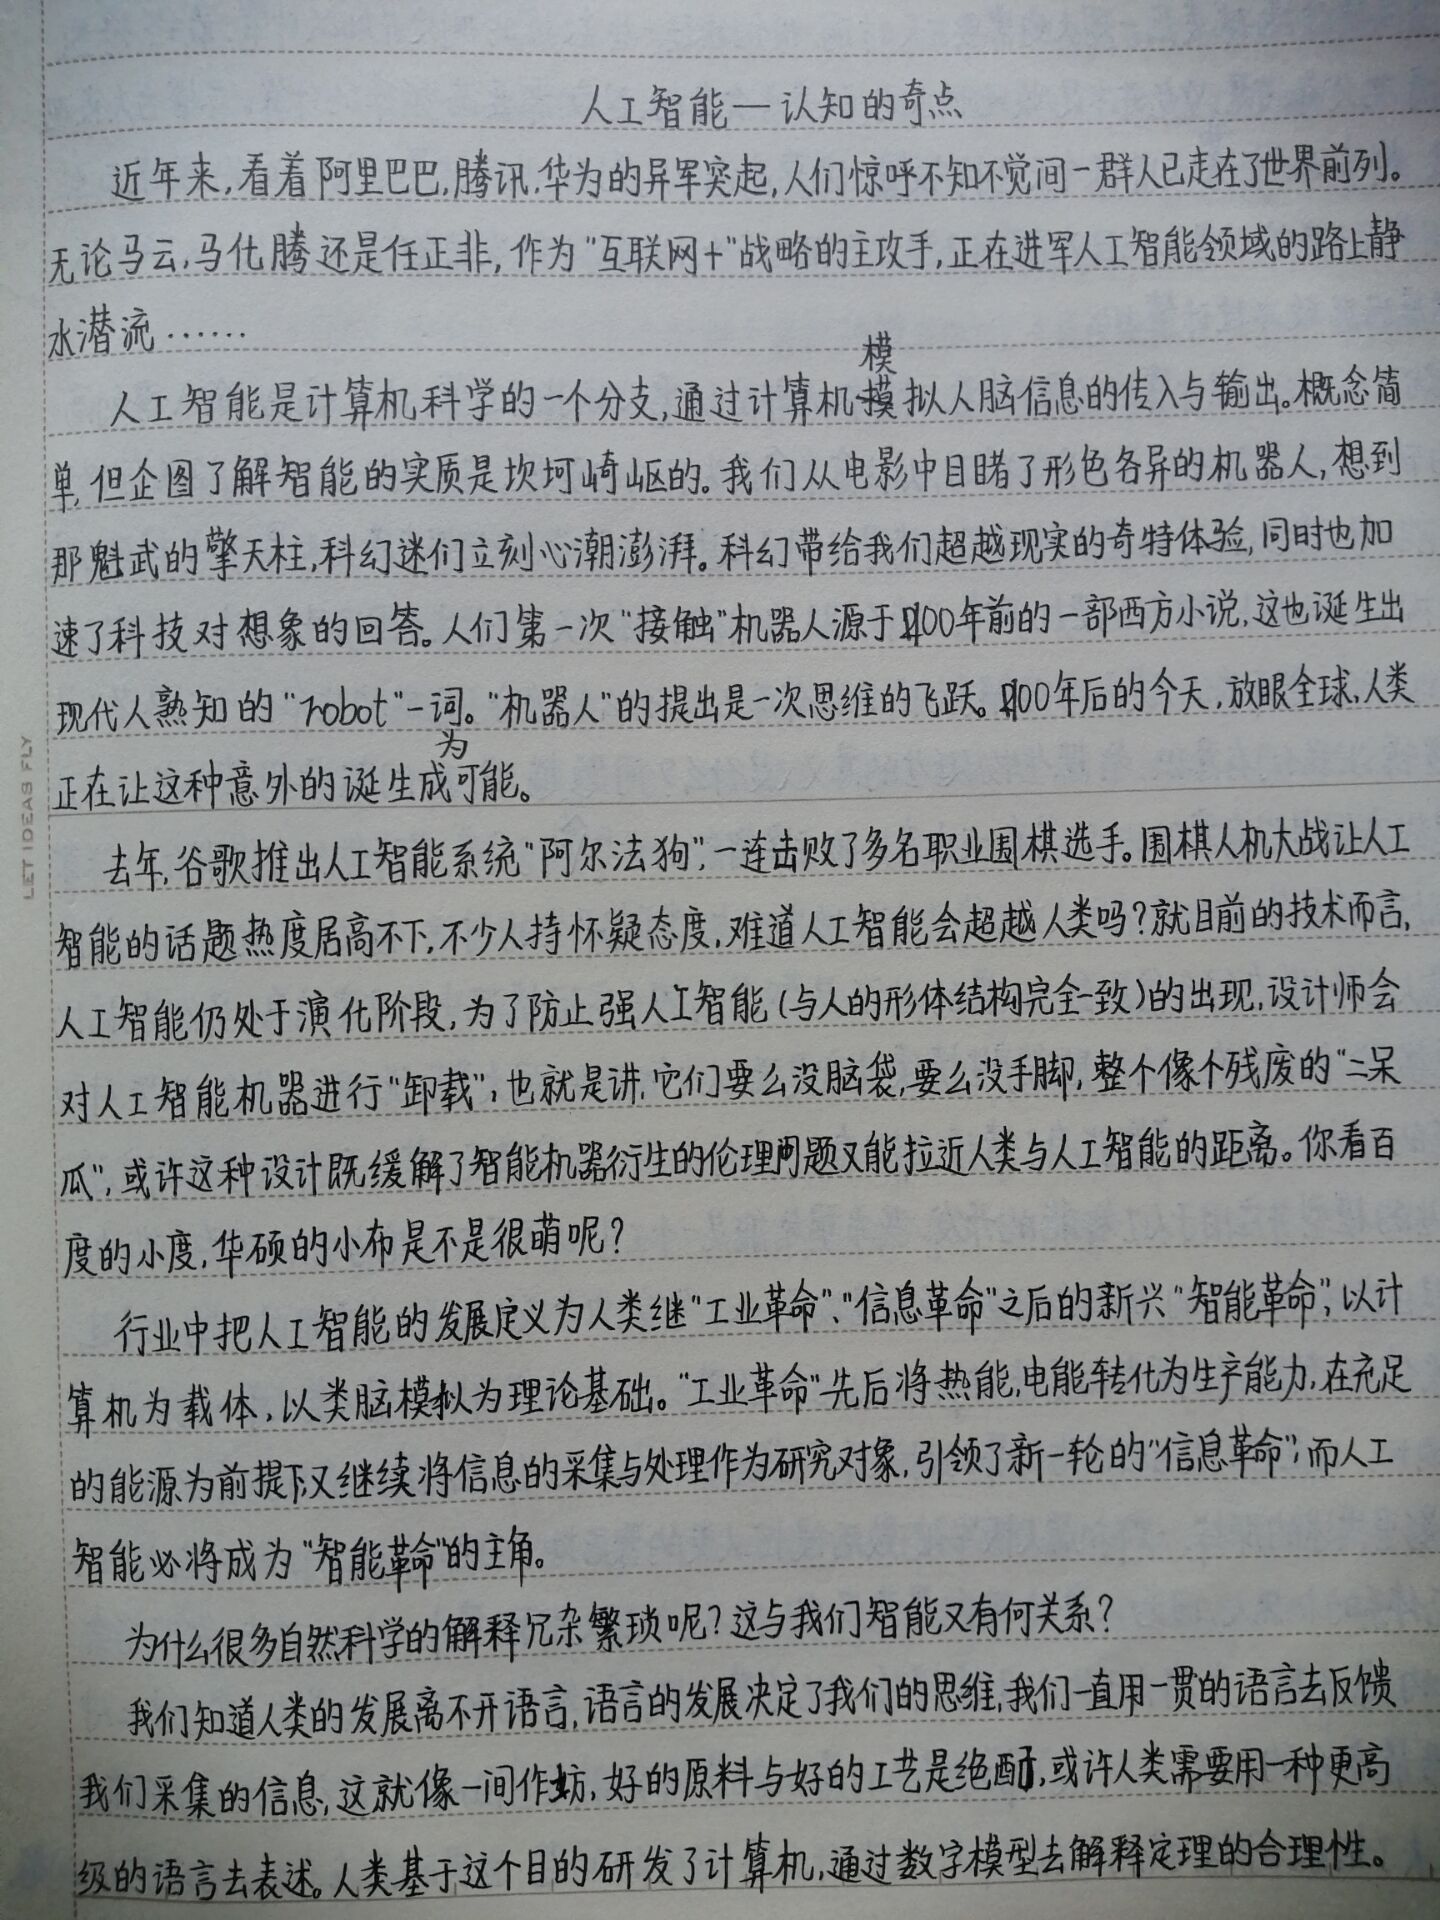 人工智能—认知的奇点
近年来,看着阿里巴巴,腾讯,华为的异军突起,人们惊呼不知不觉间一群人已走在了世界前列。
无论马云,马化腾还是任正非,作为"互联网+"战略的主攻手,正在进军人工智能领域的路上静
水潜流……
人工智能是计算机科学的一个分支,通过计算机模拟人脑信息的传入与输出。概念简
单,但企图了解智能的实质是坎坷崎岖的。我们从电影中目睹了形色各异的机器人,想到
那魁武的擎天柱,科幻迷们立刻心潮澎湃。科幻带给我们超越现实的奇特体验,同时也加
速了科技对想象的回答。人们第一次"接触"机器人源于100年前的一部西方小说,这也诞生出
现代人熟知的"robot"一词。"机器人"的提出是一次思维的飞跃。100年后的今天,放眼全球,人类
正在让这种意外的诞生成为可能。
去年,谷歌推出人工智能系统"阿尔法狗",一连击败了多名职业围棋选手。围棋人机大战让人工
智能的话题热度居高不下,不少人持怀疑态度,难道人工智能会超越人类吗?就目前的技术而言,
人工智能仍处于演化阶段,为了防止强人工智能(与人的形体结构完全一致)的出现,设计师会
对人工智能机器进行"卸载",也就是讲,它们要么没脑袋,要么没手脚,整个像个残废的"二呆
瓜",或许这种设计既缓解了智能机器衍生的伦理问题又能拉近人类与人工智能的距离。你看百
度的小度,华硕的小布是不是很萌呢?
行业中把人工智能的发展定义为人类继"工业革命"、"信息革命"之后的新兴"智能革命",以计
算机为载体,以类脑模拟为理论基础。"工业革命"先后将热能,电能转化为生产能力,在充足
的能源为前提下,又继续将信息的采集与处理作为研究对象,引领了新一轮的"信息革命";而人工
智能必将成为"智能革命"的主角。
为什么很多自然科学的解释冗杂繁琐呢?这与我们智能又有何关系?
我们知道人类的发展离不开语言,语言的发展决定了我们的思维,我们一直用一贯的语言去反馈
我们采集的信息,这就像一间作坊,好的原料与好的工艺是绝配,或许人类需要用一种更高
级的语言去表述。人类基于这个目的研发了计算机,通过数字模型去解释定理的合理性。
LET IDEAS FLY